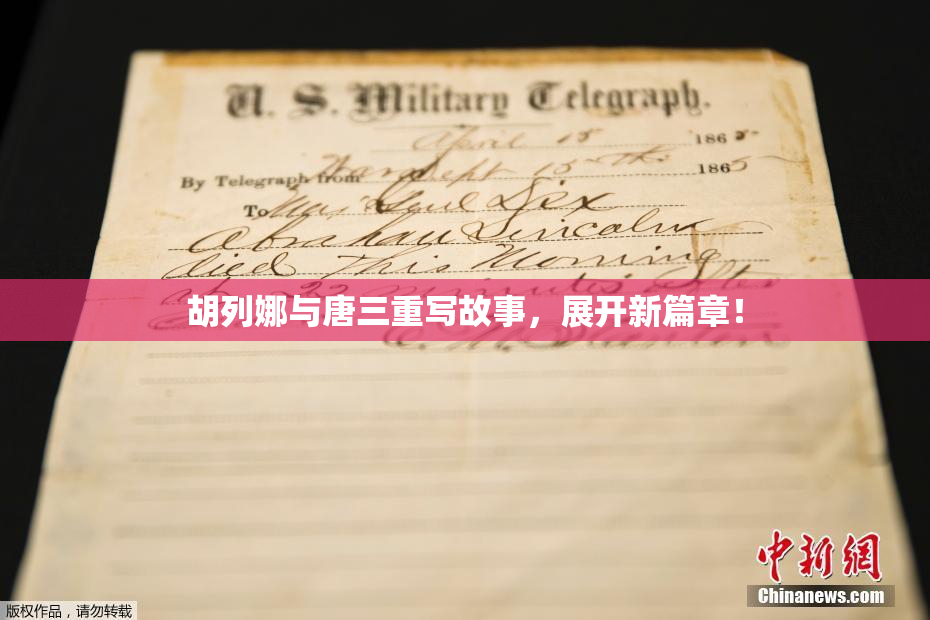 U. S. Military Telegraph.
April 15 1865
By Telegraph from War Dept 15th 1865
To Maj Genl Dix
Abraham Lincoln
died This Morning
at 22 minutes after
胡列娜与唐三重写故事，展开新篇章！
中新网
Chinanews.com
版权作品，请勿转载